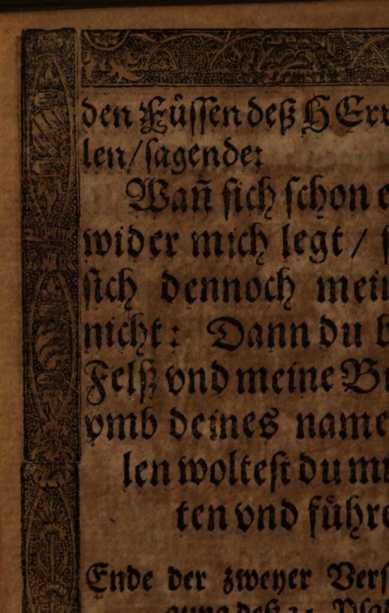 den Füssen deß HErr
len/ sagende:
Wañ sich schon e
wider mich legt / 
sich dennoch mei
nicht: Dann du b
Felß vnd meine B
vmb deines name
len woltest du m
ten vnd führe
Ende der zweyer Vers